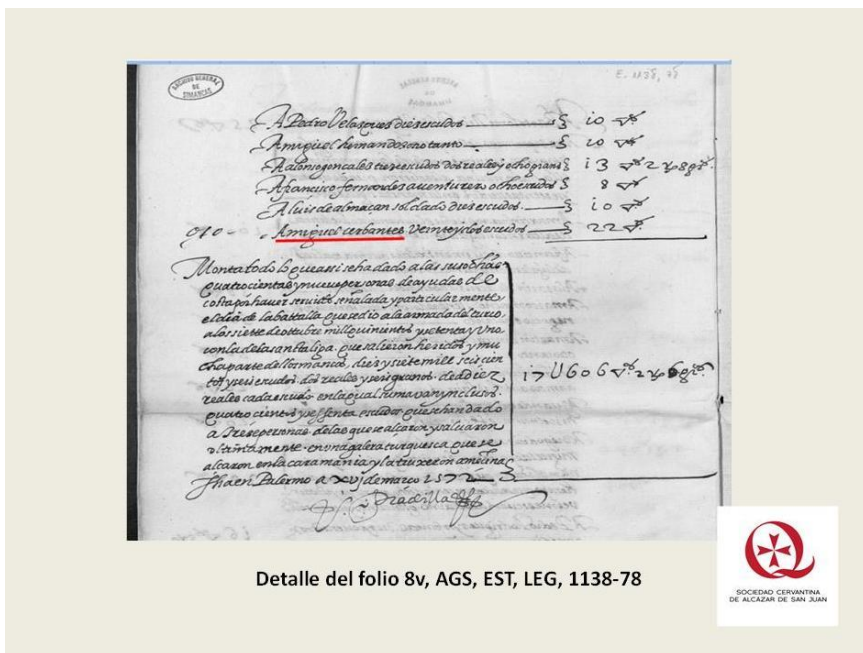 ARCHIVO GENERAL
DE
SIMANCAS
E. 1138, 78
A Pedro Velasques dies escudos § 10
A miguel hernandes otro tanto § 10
A alonso gonçales treze escudos dos reales y ocho granos § 13 2 8 gr.
A francisco fernandes aventurero ocho escudos § 8
A luis de almaçan soldado dies escudos § 10
A miguel cerbantes Veinte y dos escudos § 22
Monta todo lo que assi se ha dado a las suso dhas
quatrocientas y nueve personas de ayudas de
costa por haver servido señalada y particularmente
el dia de la batalla que se dio a la armada del turco,
a los siette de ottubre mill quinientos y setenta y Uno
con la de la santa liga. que salieron heridos y mu
cha parte dellos mancos, diez y siete mill seiscien
tos y seis escudos. dos reales y seis granos. de a diez
reales cada escudo en la qual suma van ynclusos.
quatro cientos y sesenta escudos que se han dado
a personas de las que se alçaron
en una galera turquesca que se
alçaron en la caramania y la truxeron a meçina
fha en Palermo a xvj de março 1572
17U606 2 6 gr.
Detalle del folio 8v, AGS, EST, LEG, 1138-78
SOCIEDAD CERVANTINA
DE ALCÁZAR DE SAN JUAN